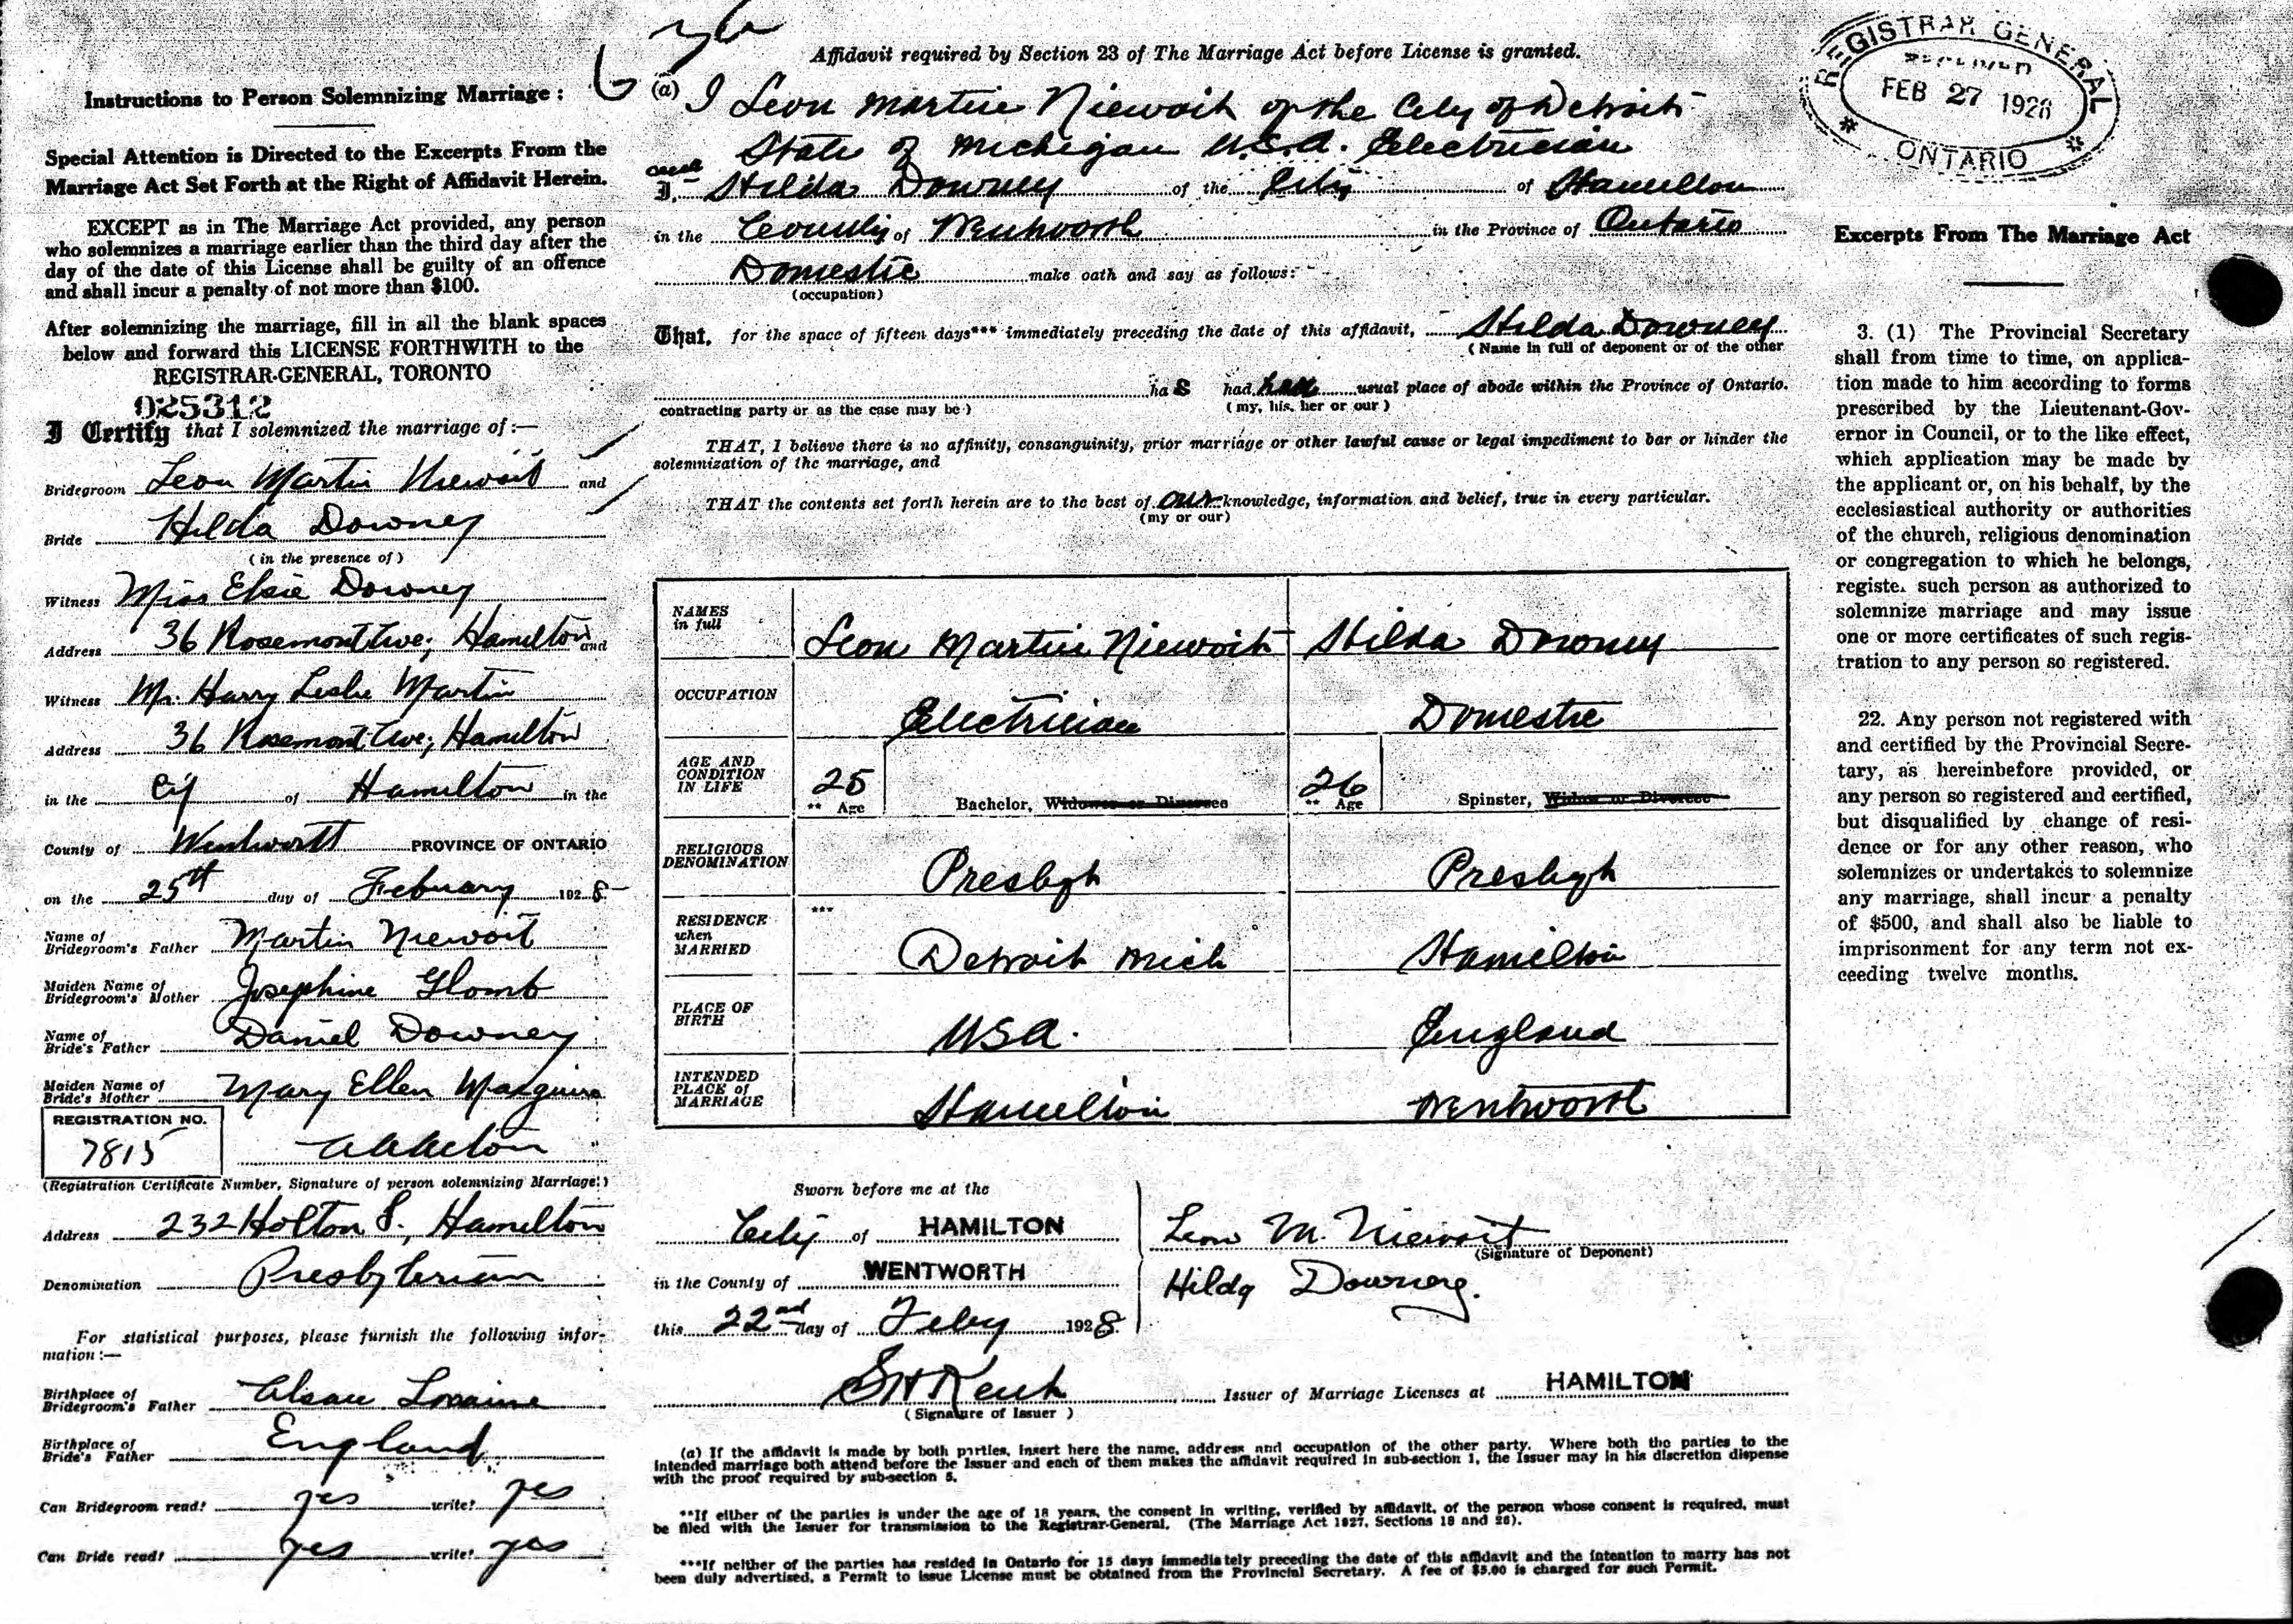 36
Instructions to Person Solemnizing Marriage :
Special Attention is Directed to the Excerpts From the
Marriage Act Set Forth at the Right of Affidavit Herein.
EXCEPT as in The Marriage Act provided, any person
who solemnizes a marriage earlier than the third day after the
day of the date of this License shall be guilty of an offence
and shall incur a penalty of not more than $100.
After solemnizing the marriage, fill in all the blank spaces
below and forward this LICENSE FORTHWITH to the
REGISTRAR-GENERAL, TORONTO
025312
I Certify that I solemnized the marriage of:—
Bridegroom Leon Martin Niewoit and
Bride Hilda Downey
(in the presence of)
Witness Miss Elsie Downey
Address 36 Rosemont Ave; Hamilton and
Witness Mr. Harry Leslie Martin
Address 36 Rosemont Ave; Hamilton
in the City of Hamilton in the
County of Wentworth PROVINCE OF ONTARIO
on the 25th day of February 1928
Name of
Bridegroom's Father Martin Niewoit
Maiden Name of
Bridegroom's Mother Josephine Glomb
Name of
Bride's Father Daniel Downey
Maiden Name of
Bride's Mother Mary Ellen
REGISTRATION NO.
7815
(Registration Certificate Number, Signature of person solemnizing Marriage.)
Address 232 Holton S., Hamilton
Denomination Presbyterian
For statistical purposes, please furnish the following infor-
mation :—
Birthplace of
Bridegroom's Father Alsace Loraine
Birthplace of
Bride's Father England
Can Bridegroom read? yes write? yes
Can Bride read? yes write? yes
Affidavit required by Section 23 of The Marriage Act before License is granted.
(a) I Leon Martin Niewoit of the City of Detroit
State of Michigan U.S.A. Electrician
and
I, Hilda Downey of the City of Hamilton
in the County of Wentworth in the Province of Ontario
Domestic make oath and say as follows:
(occupation)
That, for the space of fifteen days*** immediately preceding the date of this affidavit, Hilda Downey
(Name in full of deponent or of the other
has had her usual place of abode within the Province of Ontario.
contracting party or as the case may be) (my, his, her or our)
THAT, I believe there is no affinity, consanguinity, prior marriage or other lawful cause or legal impediment to bar or hinder the
solemnization of the marriage, and
THAT the contents set forth herein are to the best of our knowledge, information and belief, true in every particular.
(my or our)
NAMES
in full
Leon Martin Niewoit Hilda Downey
OCCUPATION
Electrician Domestic
AGE AND
CONDITION
IN LIFE
25 26
** Age Bachelor, Widower or Divorcee ** Age Spinster, Widow or Divorcee
RELIGIOUS
DENOMINATION
Presbyt Presbyt
RESIDENCE
when
MARRIED
***
Detroit Mich Hamilton
PLACE OF
BIRTH
USA. England
INTENDED
PLACE of
MARRIAGE
Hamilton Wentworth
Sworn before me at the
City of HAMILTON
in the County of WENTWORTH
this 22nd day of Feby 1928
Leon M. Niewoit
(Signature of Deponent)
Hilda Downey.
SH Kent Issuer of Marriage Licenses at HAMILTON
(Signature of Issuer)
(a) If the affidavit is made by both parties, insert here the name, address and occupation of the other party. Where both the parties to the
intended marriage both attend before the Issuer and each of them makes the affidavit required in sub-section 1, the Issuer may in his discretion dispense
with the proof required by sub-section 5.
**If either of the parties is under the age of 18 years, the consent in writing, verified by affidavit, of the person whose consent is required, must
be filed with the Issuer for transmission to the Registrar-General. (The Marriage Act 1927, Sections 18 and 26).
***If neither of the parties has resided in Ontario for 15 days immediately preceding the date of this affidavit and the intention to marry has not
been duly advertised, a Permit to issue License must be obtained from the Provincial Secretary. A fee of $5.00 is charged for such Permit.
REGISTRAR GENERAL
RECEIVED
FEB 27 1928
ONTARIO
Excerpts From The Marriage Act
3. (1) The Provincial Secretary
shall from time to time, on applica-
tion made to him according to forms
prescribed by the Lieutenant-Gov-
ernor in Council, or to the like effect,
which application may be made by
the applicant or, on his behalf, by the
ecclesiastical authority or authorities
of the church, religious denomination
or congregation to which he belongs,
register such person as authorized to
solemnize marriage and may issue
one or more certificates of such regis-
tration to any person so registered.
22. Any person not registered with
and certified by the Provincial Secre-
tary, as hereinbefore provided, or
any person so registered and certified,
but disqualified by change of resi-
dence or for any other reason, who
solemnizes or undertakes to solemnize
any marriage, shall incur a penalty
of $500, and shall also be liable to
imprisonment for any term not ex-
ceeding twelve months.